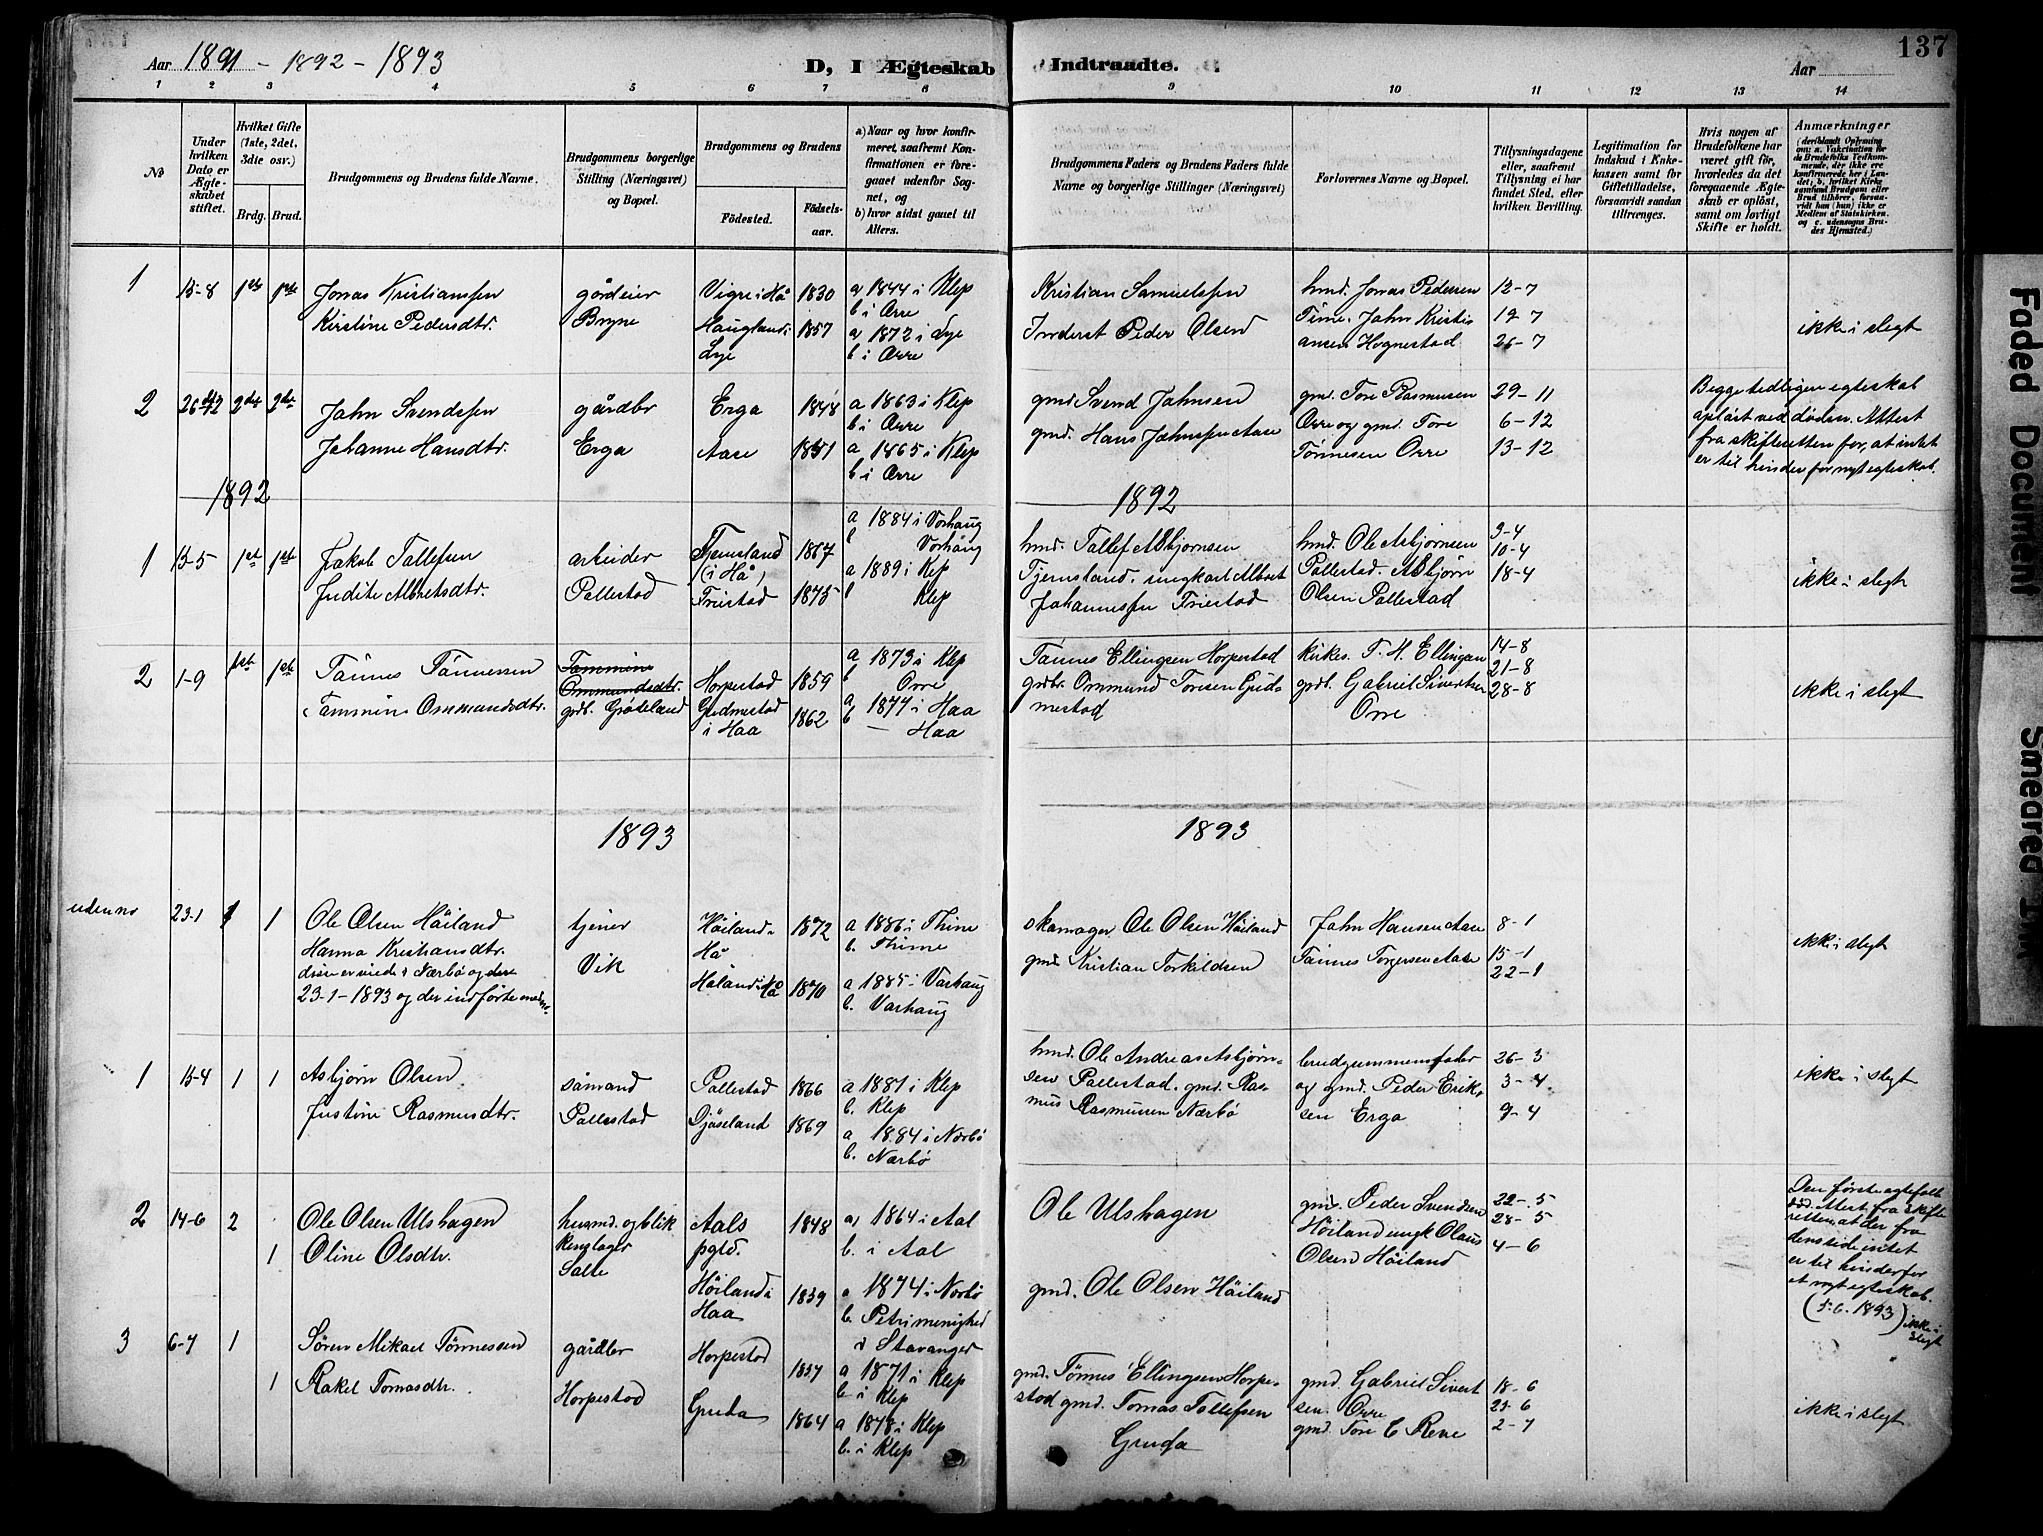 137
Aar 1891 - 1892 - 1893
D, I Ægteskab Indtraadte.
Aar
1 2 3 4 5 6 7 8 9 10 11 12 13 14
No
Under hvilken Dato er Ægteskabet stiftet.
Hvilket Gifte (1ste, 2det, 3die osv.)
Brdg. Brud.
Brudgommens og Brudens fulde Navne.
Brudgommens borgerlige Stilling (Næringsvei) og Bopæl.
Brudgommens og Brudens
Födested.
Födselsaar.
a) Naar og hvor konfirmeret, saafremt Konfirmationen er foregaaet udenfor Sognet, og
b) hvor sidst gaaet til Alters.
Brudgommens Faders og Brudens Faders fulde Navne og borgerlige Stillinger (Næringsvei)
Forlovernes Navne og Bopæl.
Tillysningsdagene eller, saafremt Tillysning ei har fundet Sted, efter hvilken Bevilling.
Legitimation for Indskud i Enkekassen samt for Giftetilladelse, forsaavidt saadan tiltrænges.
Hvis nogen af Brudefolkene har været gift för, hvorledes da det foregaaende Ægteskab er oplöst, samt om lovligt Skifte er holdt.
Anmærkninger
(deriblandt Oplysning om: a. Vakcination for de Brudefolks Vedkommende, der ikke ere konfirmerede her i Landet; b. hvilket Kirkesamfund Brudgom eller Brud tilhörer, forsaavidt han (hun) ikke er Medlem af Statskirken, og c. udensogns Brudes Hjemsted.)
1
15-8
1ste 1ste
Jonas Kristianssen
Kirstine Pedersdtr.
gårdeier
Bryne
Vigre i Hå
Haugland i
Lye
1830
1857
a 1844 i Klep
b i Orre
a 1872 i Lye
b i Orre
Kristian Samuelssen
Inderst Peder Olsen
hmd. Jonas Pedersen
Time. Jahn Kristi
ansen Hognestad
12-7
19-7
26-7
ikke i slegt
2
26-12
2det 2det
Jahn Svendssen
Johanne Hansdtr.
gårdbr
Erga
Erga
Aase
1848
1851
a 1863 i Klep
b i Orre
a 1865 i Klep
b i Orre
gmd Svend Jahnsen
gmd. Hans Jahnssen Aase
gmd. Tore Rasmusen
Orre og gmd. Tore
Tönnesen Orre
29-11
6-12
13-12
Begge tedligen egteskab
opløst ved döden. Attest
fra skifteretten for, at intet
er til hinder for nyt egteskab.
1892
1892
1
15-5
1ste 1ste
Jakob Tallefsen
Judite Albretsdtr.
arbeider
Pallestad
Tjemsland
(i Hå)
Friestad
1867
1875
a 1884 i Vorhaug
b Vorhaug
a 1889 i Kep
b Klep
hmd. Tallef Asbjörnsen
Tjemsland. ungkarl Albret
Johannessen Friestad
hmd. Ole Asbjörnsen
Pallestad. Asbjörn
Olsen Pallestad
3-4
10-4
18-4
ikke i slegt
2
1-9
1ste 1ste
Tönnes Tönnesen
Tammine Ommundsdtr.
Tammine
Ommundsdtr.
grdb. Gröteland
Horpestad
Gudmestad
i Haa
1859
1862
a 1873 i Klep
b Orre
a 1877 i Haa
b - Haa
Tönnes Ellingsen Horpestad
grdbr. Ommund Toresen Gudmestad
kirkes. T. H. Ellingsen
grdb. Gabriel Sivertsen
Orre
14-8
21-8
28-8
ikke i slegt
1893
1893
uden no
23-1
1 1
Ole Olsen Höiland
Hanna Kristiansdtr.
disse er viede i Nærbö og den
23-1-1893 og der indförte med no
tjener
Vik
Höiland i
Hå
Håland i Hå
1872
1870
a 1886 i Thime
b. Thime
a 1885 i Varhaug
b. Varhaug
skomager Ole Olsen Höiland
gmd Kristian Torkildsen
Jahn Hansen Aase
Tönnes Torgersen Aase
8-1
15-1
22-1
ikke i slegt
1
15-4
1 1
Asbjörn Olsen
Justine Rasmusdtr.
sömand
Pallestad
Pallestad
Djöseland
1866
1869
a 1881 i Klep
b. Klep
a 1884 i Nærbö
b. Nærbö
hmd. Ole Andreas Asbjörnsen
Pallestad. gmd. Rasmus
Rasmussen Nærbö
brudgummens fader
og gmd. Peder Eriksen
Erga
26-3
3-4
9-4
ikke i slegt
2
14-6
2
1
Ole Olsen Ulshagen
Oline Olsdtr.
husmd. og blik
kenslager
Salte
Aals
pgld.
Höiland i
Haa
1848
1839
a) 1864 i Aal
b. i Aal
a 1874 i Nærbö
b. Petri menighed
i Stavanger
Ole Ulshagen
gmd. Ole Olsen Höiland
gmd. Peder Svendsen
Höiland ungk Olaus
Olsen Höiland
22-5
28-5
4-6
Den förste egtefælle
död. Attest fra skifte
retten at der fra
dens side intet
er til hinder for
et nyt egteskab.
(5-6. 1893) ikke i
slegt
3
6-7
1
1
Sören Mikael Tönnessen
Rakel Tomasdtr.
gårdbr
Horpestad
Horpestad
Gruda
1857
1864
a 1871 i Klep
b. i Klep
a 1878 i Klep
b. i Klep
gmd. Tönnes Ellingsen Horpestad
gmd. Tomas Tallefsen
Gruda
gmd. Gabriel Sivertsen
Orre
gmd. Tore E Reve
18-6
25-6
2-7
ikke i slegt
Faded Document
Smeared Ink